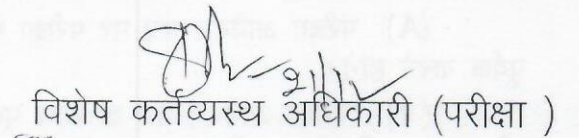 विशेष कर्तव्यस्थ अधिकारी (परीक्षा )